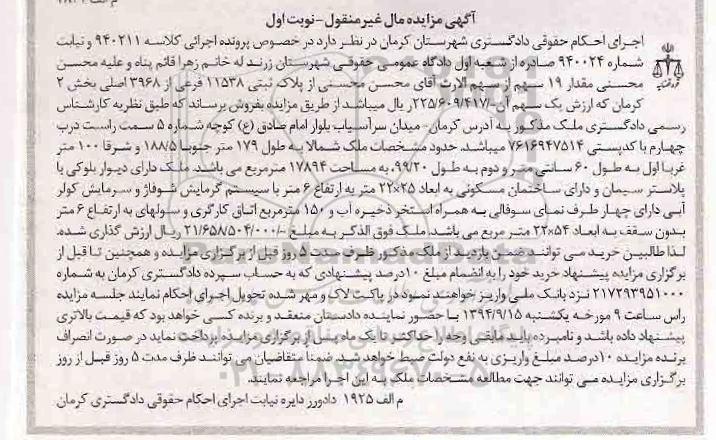 آگهی مزایده مال غیر منقول - نوبت اول
اجرای احکام حقوقی دادگستری شهرستان کرمان در نظر دارد در خصوص پرونده اجرائی کلاسه ۹۴۰۲۱۱ و نیابت
شماره ۹۴۰۰۲۴ صادره از شعبه اول دادگاه عمومی حقوقی شهرستان زرند له خانم زهرا قائم پناه و علیه محسن
محسنی مقدار ۱۹ سهم از سهم الارث آقای محسن محسنی از پلاک ثبتی ۱۱۵۳۸ فرعی از ۳۹۶۸ اصلی بخش ۲
کرمان که ارزش یک سهم آن -/۲۲۵/۶۰۹/۴۱۷ ریال میباشد از طریق مزایده بفروش برساند که طبق نظریه کارشناس
رسمی دادگستری ملک مذکور به آدرس کرمان - میدان سرآسیاب بلوار امام صادق (ع) کوچه شماره ۵ سمت راست درب
چهارم با کدپستی ۷۶۱۶۹۴۷۵۱۴ میباشد. حدود مشخصات ملک شمالا به طول ۱۷۹ متر جنوبا ۱۸۸/۵ و شرقا ۱۰۰ متر
غربا اول به طول ۶۰ سانتی متر و دوم به طول ۹۹/۲۰، به مساحت ۱۷۸۹۴ مترمربع می باشد. ملک دارای دیوار بلوکی با
پلاستر سیمان و دارای ساختمان مسکونی به ابعاد ۲۵×۲۲ متر به ارتفاع ۶ متر با سیستم گرمایش شوفاژ و سرمایش کولر
آبی دارای چهار طرف نمای سوفالی به همراه استخر ذخیره آب و ۱۵۰ مترمربع اتاق کارگری و سولهای به ارتفاع ۶ متر
بدون سقف به ابعاد ۵۴×۲۲ متر مربع می باشد. ملک فوق الذکر به مبلغ -/۲۱/۶۵۸/۵۰۴/۰۰۰ ریال ارزش گذاری شده.
لذا طالبین خرید می توانند ضمن بازدید از ملک مذکور ظرف مدت ۵ روز قبل از برگزاری مزایده و همچنین تا قبل از
برگزاری مزایده پیشنهاد خرید خود را به انضمام مبلغ ۱۰درصد پیشنهادی که به حساب سپرده دادگستری کرمان به شماره
۲۱۷۲۹۳۹۵۱۰۰۰ نزد بانک ملی واریز خواهند نمود در پاکت لاک و مهر شده تحویل اجرای احکام نمایند جلسه مزایده
راس ساعت ۹ مورخه یکشنبه ۱۳۹۴/۹/۱۵ با حضور نماینده دادستان منعقد و برنده کسی خواهد بود که قیمت بالاتری
پیشنهاد داده باشد و نامبرده باید مابقی وجه را حداکثر تا یک ماه پس از برگزاری مزایده پرداخت نماید در صورت انصراف
برنده مزایده ۱۰درصد مبلغ واریزی به نفع دولت ضبط خواهد شد. ضمنا متقاضیان می توانند ظرف مدت ۵ روز قبل از روز
برگزاری مزایده می توانند جهت مطالعه مشخصات ملک به این اجرا مراجعه نمایند.
م الف ۱۹۲۵ دادورز دایره نیابت اجرای احکام حقوقی دادگستری کرمان